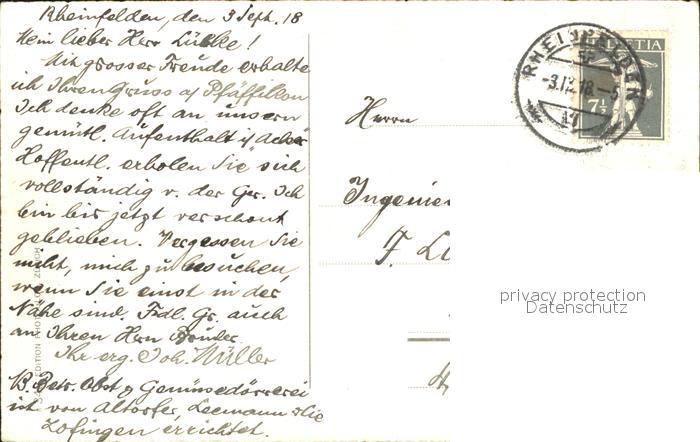 Rheinfelden, den 3 Sept. 18
Mein lieber Herr Lübke!
Mit grosser Freude erhalte
ich Ihren Gruss a/ Pfäffikon
Ich denke oft an unsern
gemütl. Aufenthalt i/
Hoffentl. erholen Sie sich
vollständig v. der Gr. Ich
bin bis jetzt verschont
geblieben. Vergessen Sie
nicht, mich zu besuchen,
wenn Sie einst in der
Nähe sind. Frdl. Gr. auch
an Ihren Hrn Bruder.
Ihr erg. Joh. Müller
B. Betr. Obst & Gemüsedörrerei
ist von Altorfer, Leemann & Cie
Zofingen errichtet.
Herrn
Ingenieu
F. Lü
RHEINFELDEN
HELVETIA
7½
privacy protection
Datenschutz